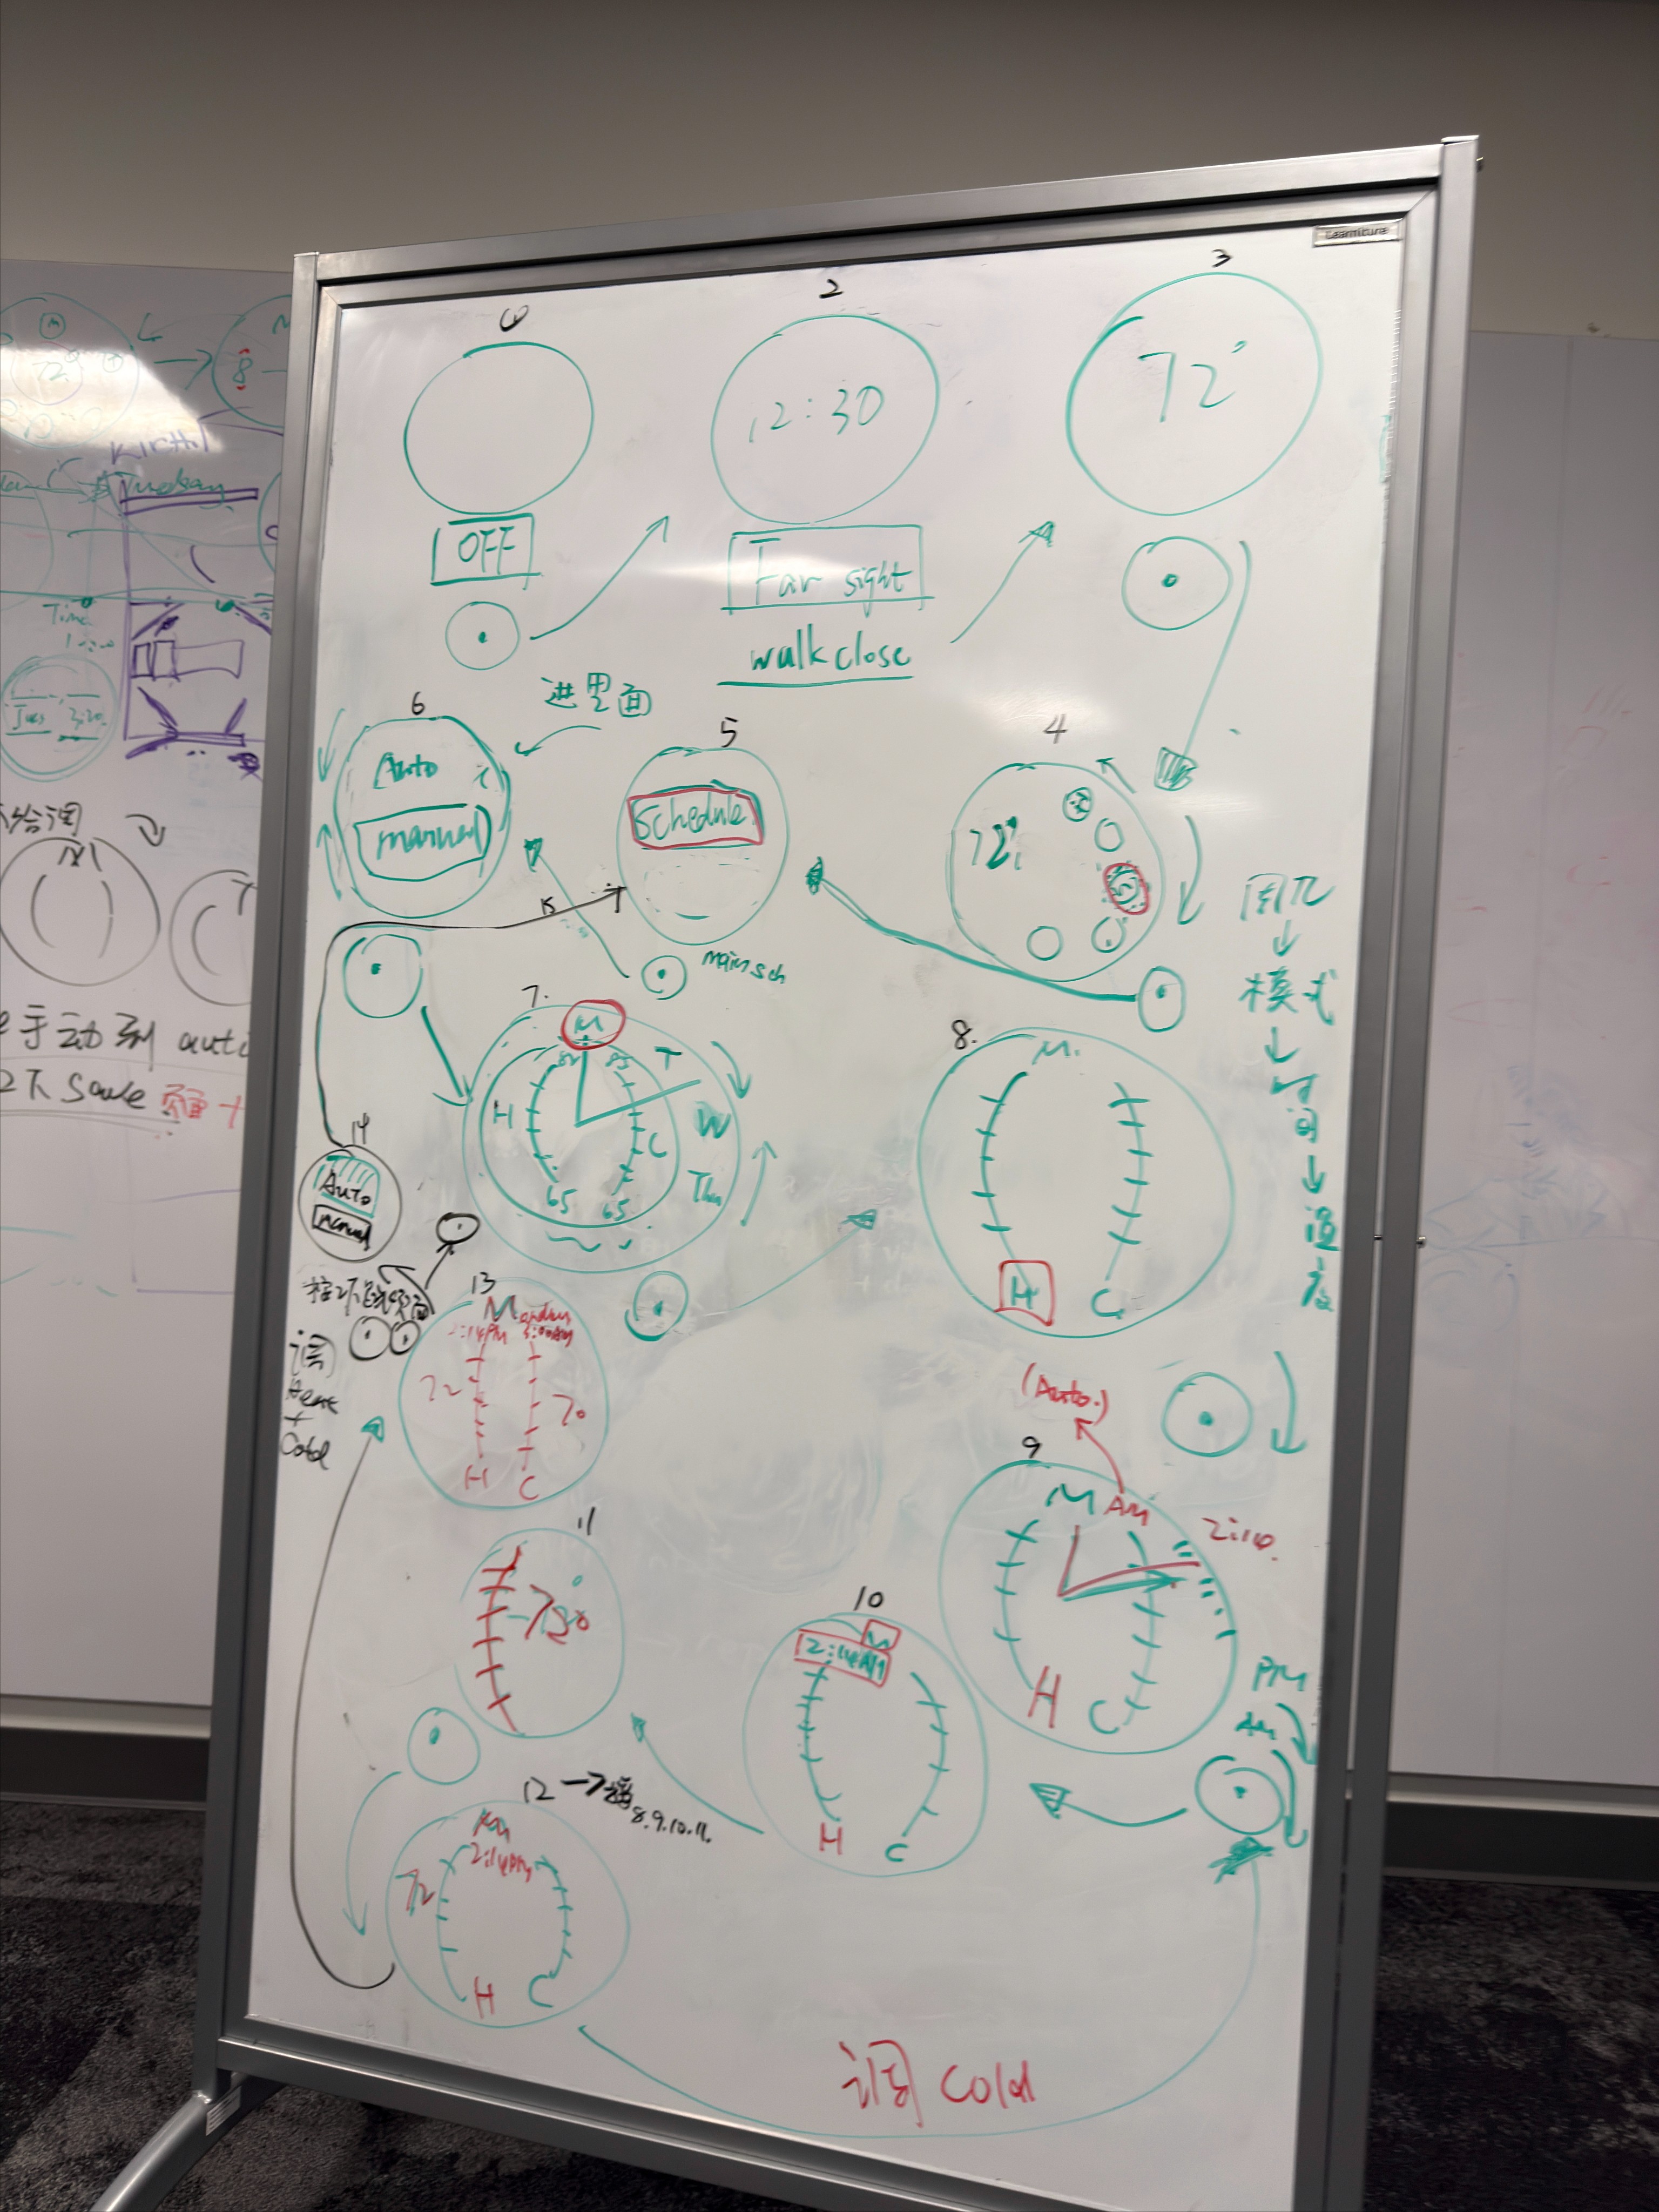 1
2
3
12:30
72°
OFF
Far sight
walk close
进里面
6
Auto
manual
5
Schedule
main sch
4
72°
15
周几
↓
模式
↓
时间
↓
温度
7.
M
T
W
Thu
82
85
H
C
65
65
8.
M.
H
C
14
Auto
manual
调
Heat
+
Cold
13
Monday
2:14PM
72
70
H
C
(Auto.)
9
M AM
2:10.
H
C
PM
AM
10
M
2:14AM
H
C
11
12 →
8.9.10.11.
2:14PM
72
H
C
调 Cold
Tuesday
Time
Tues
手动到 auto
不 Save
72
8
M